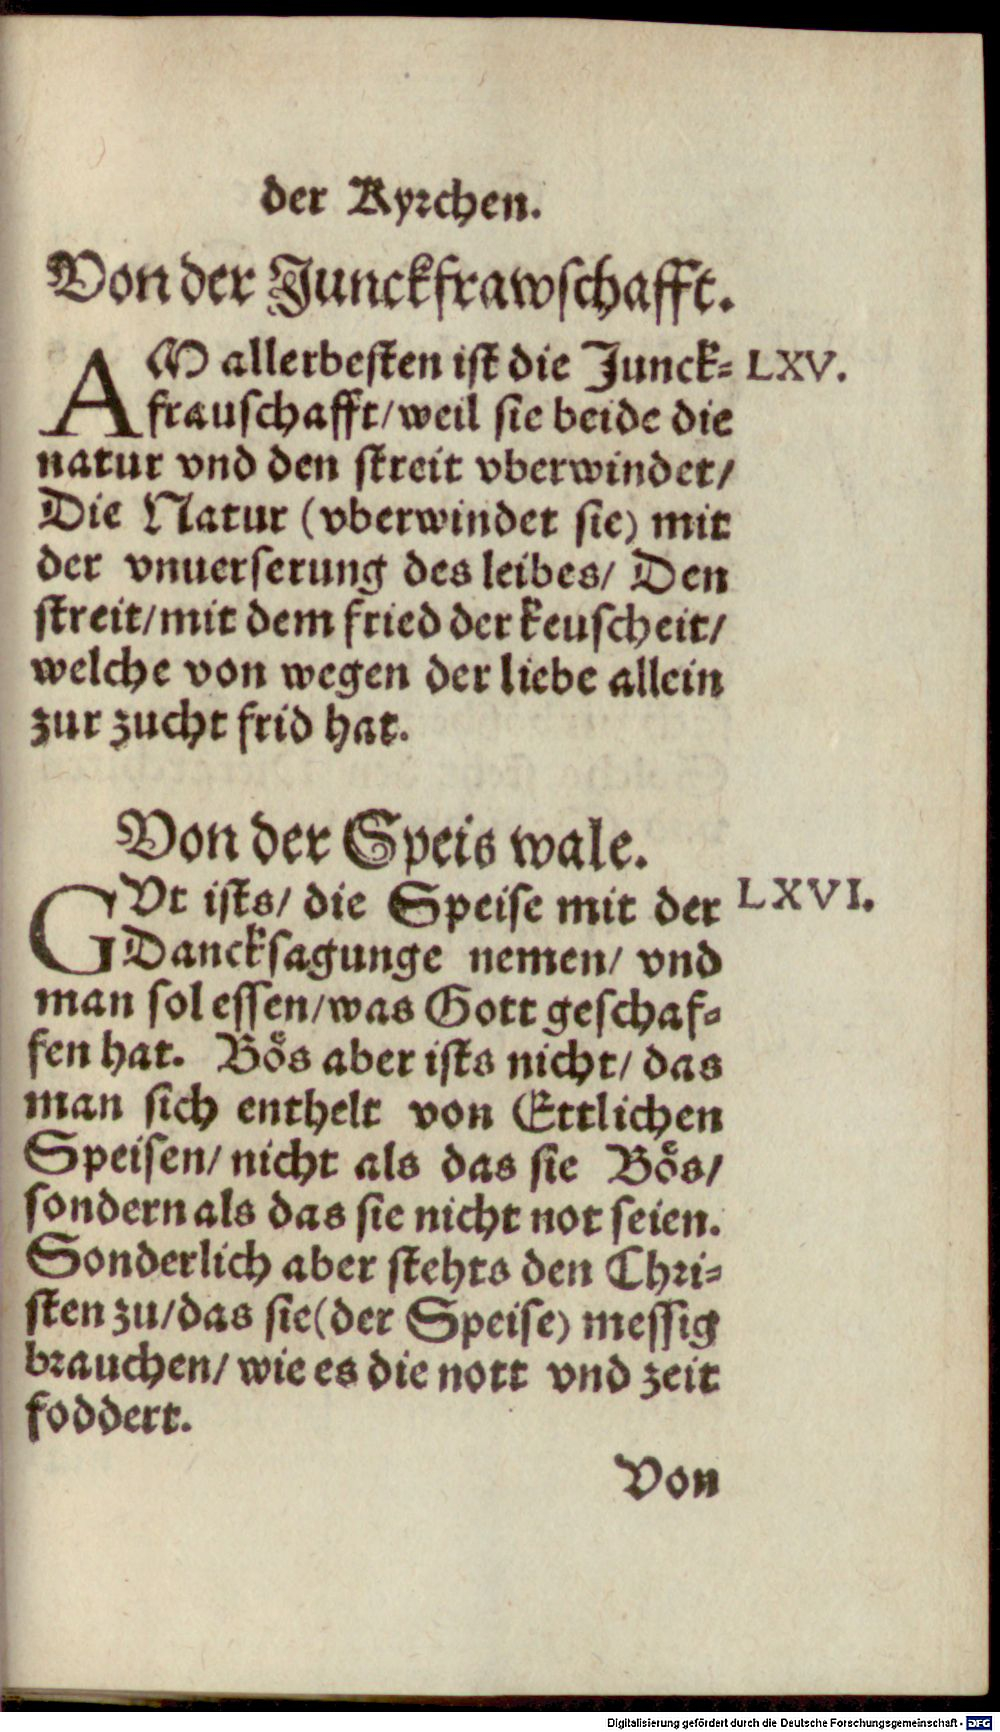 der Kyrchen.
Von der Junckfrawschafft.
AM allerbesten ist die Junck- LXV.
frauschafft/weil sie beide die
natur vnd den streit vberwindet/
Die Natur (vberwindet sie) mit
der vnuerserung des leibes/ Den
streit/mit dem fried der keuscheit/
welche von wegen der liebe allein
zur zucht frid hat.
Von der Speis wale.
GVt ists/ die Speise mit der LXVI.
Dancksagunge nemen/ vnd
man sol essen/was Gott geschaf-
fen hat. Bös aber ists nicht/ das
man sich enthelt von Ettlichen
Speisen/ nicht als das sie Bös/
sondern als das sie nicht not seien.
Sonderlich aber stehts den Chri-
sten zu/das sie(der Speise) messig
brauchen/ wie es die nott vnd zeit
foddert.
Von
Digitalisierung gefördert durch die Deutsche Forschungsgemeinschaft - DFG